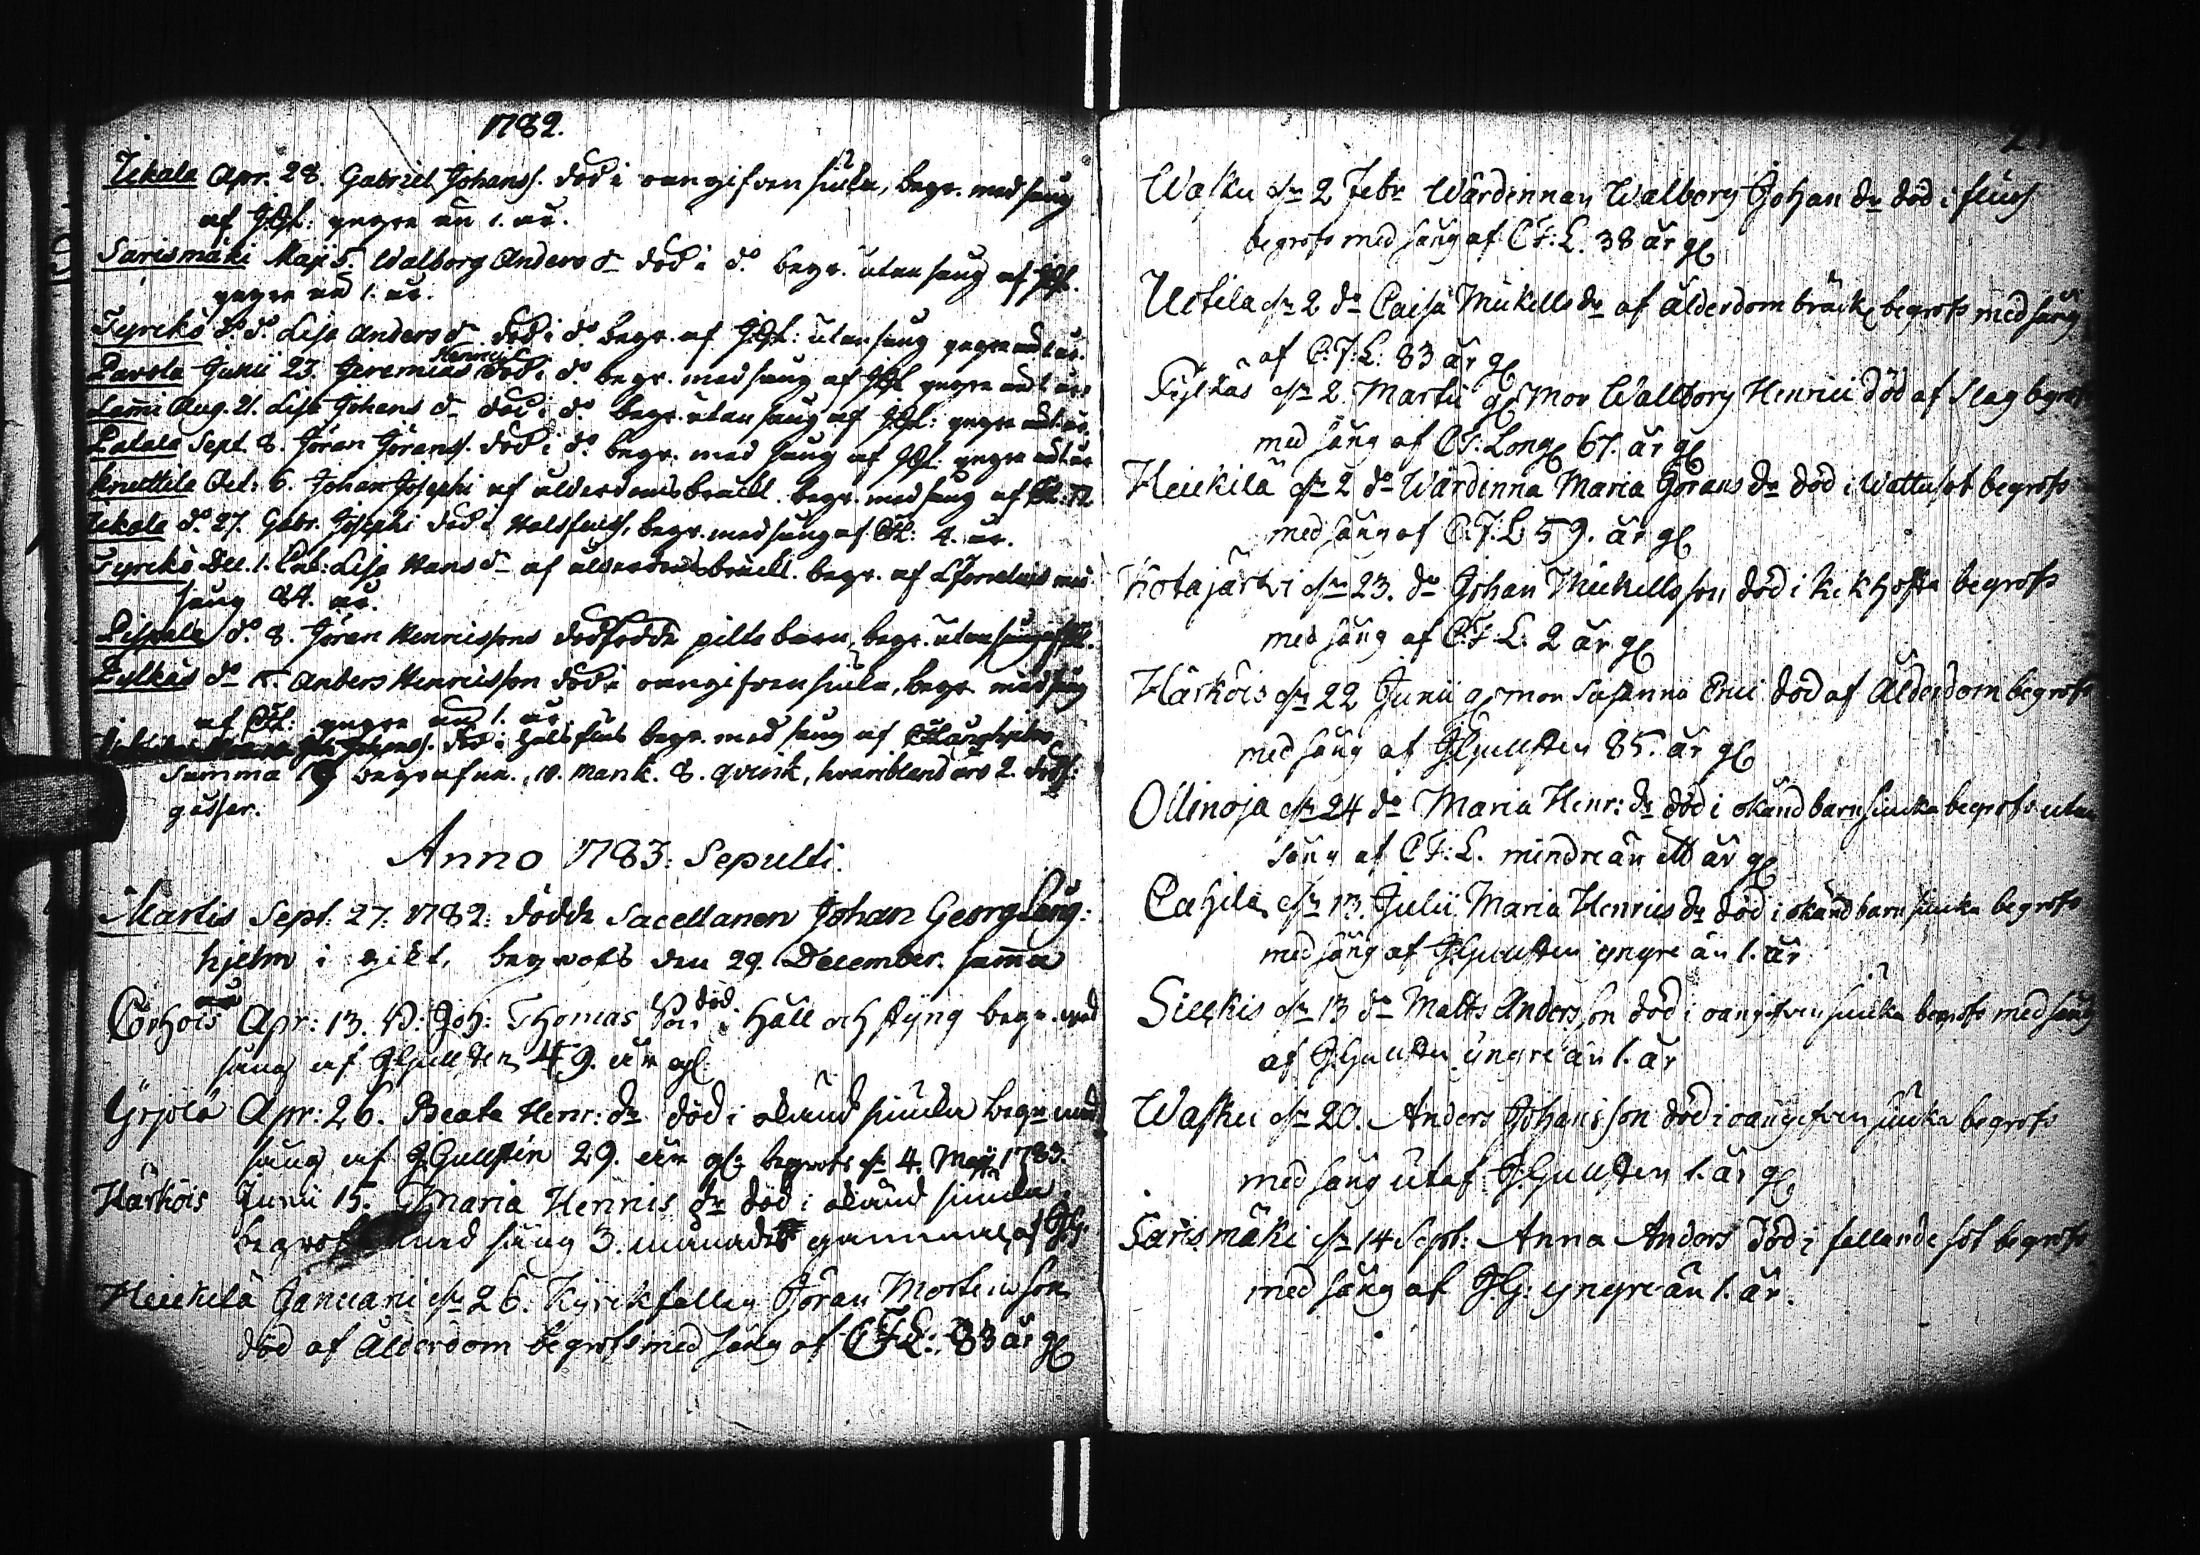 1782.
Jekala Apr. 28. Gabriel Johanss. död i oangifven siuka, begr. med sang
af JGl: yngre än 1. år.
Sarismäki Maji 5. Walborg Anders dr död i do. begr. utan sang af JGl.
yngre än 1. år.
Tyrckö do. do. Lisa Anders dr död i do. begr. af JGl: utan sang yngre än 1 år.
Parola Junii 23. Jeremias Henrici död i do. begr. med sang af JGl yngre än 1 år
Lami Aug. 21. Lisa Johans dr död i do. begr. utan sang af JGl: yngre än 1. år.
Palala Sept. 8. Jöran Jöranss. död i do. begr. med sang af JGl: yngre än 1 år
Knuttila Oct: 6. Johan Josephi af ålderdoms bräckl. begr. med sang af CFL: 72
Jekala do. 27. Gabr. Josephi död i Halsfluss, begr. med sang af CFL: 4. år.
Tyrckö Dec. 1. Enk: Lisa Hans dr af ålderdoms bräckl. begr. af med
sang 84. år.
do. 8. Jöran Henricssons dödfödda piltebarn, begr. utan sang af
Pylkäs do 15. Anders Henricsson död i oangifven siuka, begr. med sang
af CFL: yngre än 1. år.
Johanss. död i Halsfluss begr. med sang af CFLaughjelm
Summa 19 begrafne, 10. mank. 8. qvink, hvaribland äro 2. dödf:
gossar.
Anno 1783: Sepulti.
Martis Sept: 27: 1782: dödde Sacellanen Johan Georg Laug:
hjelm i gikt, begrofs den 29. December. samma
Corhois Apr: 13. B: Joh: Thomas Son död i Håll och styng begr. med
sang af JGullsten 49. år gl:
Yrjölä Apr: 26. Beata Henr: dr död i okänd siuka begr med
sang af JGullsten 29. år gl: begrofs dn 4. Maji 1783.
Härköis Junii 15. Maria Hennis dr död i okänd siuka
begrofs med sang 3. månader gammal af JG.
Heickilä Januarii dn 26. Kyrckfallen Jöran Mortensson
död af Ålderdom begrofs med sang af CFL: 83 år gl
Wasku dn 2 Febr Wärdinnan Walborg Johan dr död i fluss
begrofs med sang af CF:L. 38 år gl
Uotila dn 2 do Caisa Mickells dr af ålderdom bräck begrofs med sang
af C:F:L: 83 år gl
Pylkäs dn 2. Martii gl Mor Wallborg Henrici död af Slag begrofs
med sang af CF: Long 67. år gl
Heickilä dn 2 do Wärdinna Maria Görans dr död i Wattusot begrofs
med sang af C.F:L 59. år gl
Kotajärvi dn 23. do Johan Mickellsson död i kikhosta begrofs
med sang af C:F:L: 2 år gl
Härköis dn 22 Junii gl mor Susanna Erici död af Ålderdom begrofs
med sang af JGullsten 85. år gl
Ollinoja dn 24 do Maria Henr: dr död i okänd barnsiuka begrofs utan
sang af CF:L. mindre än ett år gl
Cahila dn 13. Julii Maria Henrics dr död i okänd barn siuka begrofs
med sang af JGullsten yngre än 1. år
Sieckis dn 13 do Matts Andersson död i oangifven siuka begrofs med sang
af JGullsten yngre än 1. år
Wasku dn 20. Anders Johansson död i oangifven siuka begrofs
med sang utaf JGullsten 1. år gl
Sarismäki dn 14 Sept: Anna Anders död i fallande sot begrofs
med sang af JG: yngre än 1. år.